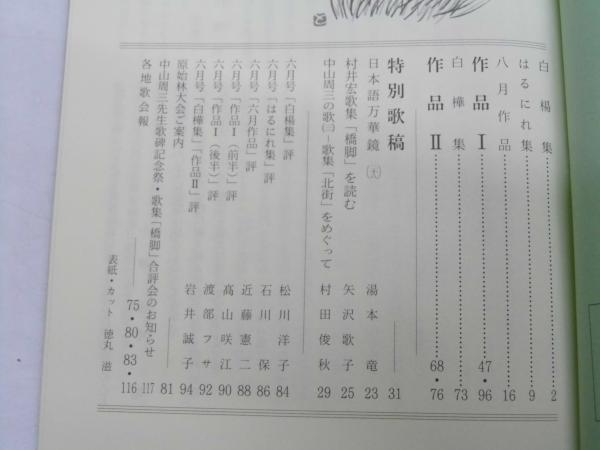 白楊集 2
はるにれ集 9
八月作品 16
作品Ⅰ 47・96
白樺集 73
作品Ⅱ 68・76
特別歌稿 31
日本語万華鏡 湯本竜 23
村井宏歌集「橋脚」を読む 矢沢歌子 25
中山周三の歌(三)―歌集「北街」をめぐって 村田俊秋 29
六月号「白楊集」評 松川洋子 84
六月号「はるにれ集」評 石川保 86
六月号「六月作品」評 近藤憲二 88
六月号「作品Ⅰ(前半)」評 高山咲江 90
六月号「作品Ⅰ(後半)」評 渡部フサ 92
六月号「白樺集」「作品Ⅱ」評 岩井誠子 94
原始林大会ご案内 81
中山周三先生歌碑記念祭・歌集「橋脚」合評会のお知らせ 117
各地歌会報 75・80・83・116
表紙・カット 徳丸滋